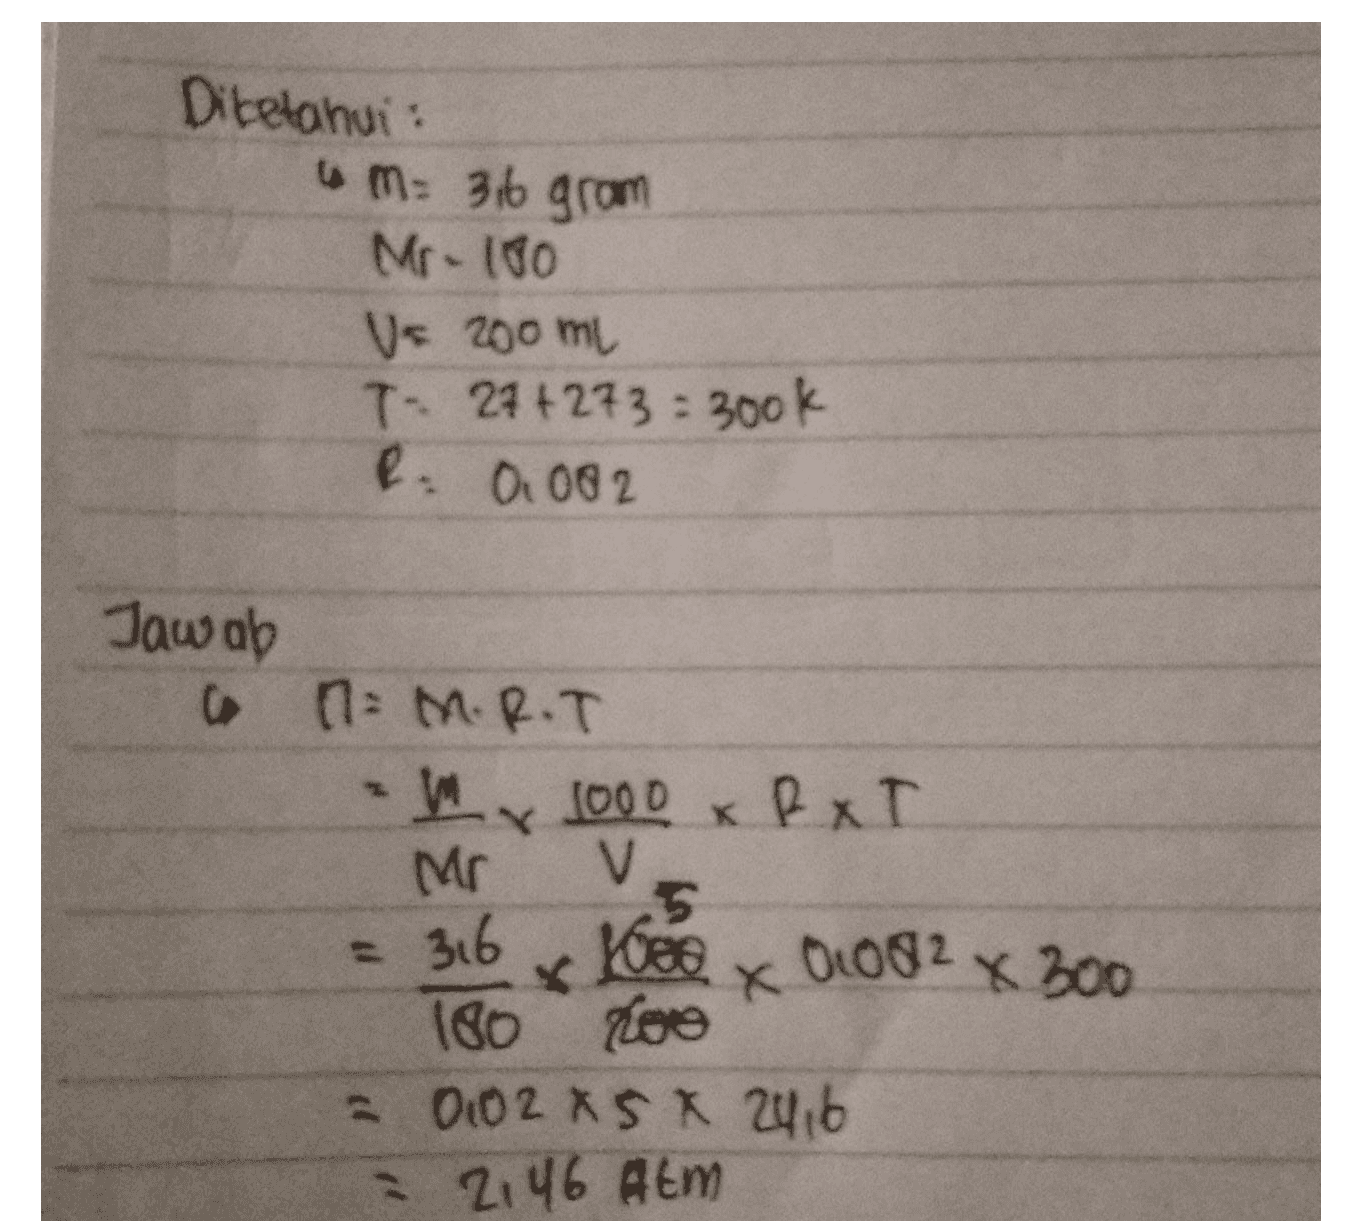 Diketahui :
↳ m = 3,6 gram
Mr = 180
V = 200 mL
T = 27 + 273 = 300 k
R = 0,082
Jawab
↳ Π = M . R . T
= m/Mr x 1000/V x R x T
= 3,6/180 x 1000/200 5 x 0,082 x 300
= 0,02 x 5 x 24,6
= 2,46 Atm